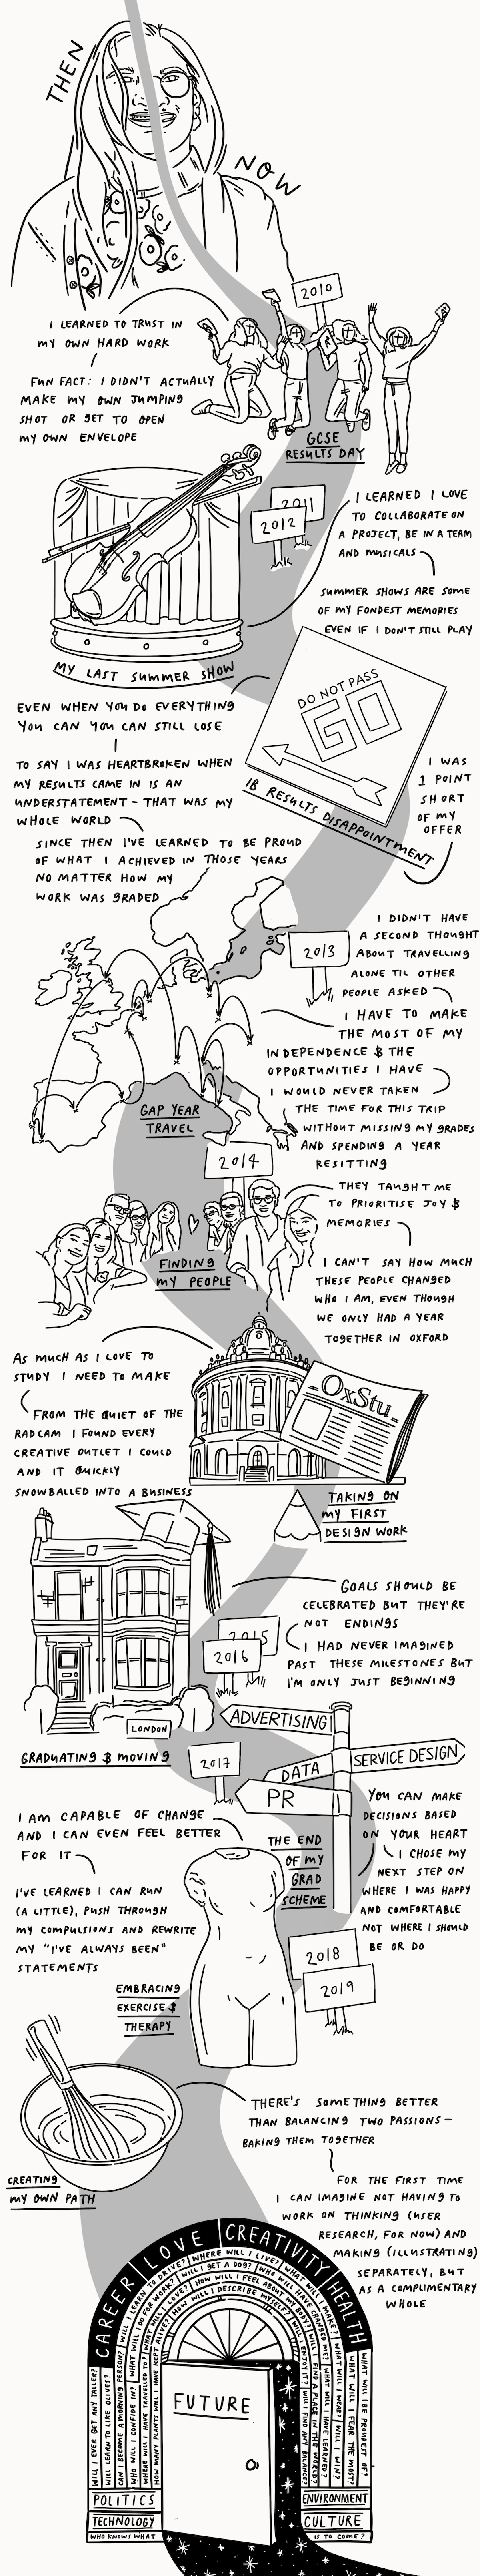 THEN
NOW
2010
I LEARNED TO TRUST IN
MY OWN HARD WORK
FUN FACT: I DIDN'T ACTUALLY
MAKE MY OWN JUMPING
SHOT OR GET TO OPEN
MY OWN ENVELOPE
GCSE
RESULTS DAY
2011
2012
I LEARNED I LOVE
TO COLLABORATE ON
A PROJECT, BE IN A TEAM
AND MUSICALS
SUMMER SHOWS ARE SOME
OF MY FONDEST MEMORIES
EVEN IF I DON'T STILL PLAY
MY LAST SUMMER SHOW
DO NOT PASS
GO
EVEN WHEN YOU DO EVERYTHING
YOU CAN YOU CAN STILL LOSE
TO SAY I WAS HEARTBROKEN WHEN
MY RESULTS CAME IN IS AN
UNDERSTATEMENT - THAT WAS MY
WHOLE WORLD
IB RESULTS DISAPPOINTMENT
I WAS
1 POINT
SHORT
OF MY
OFFER
SINCE THEN I'VE LEARNED TO BE PROUD
OF WHAT I ACHIEVED IN THOSE YEARS
NO MATTER HOW MY
WORK WAS GRADED
2013
I DIDN'T HAVE
A SECOND THOUGHT
ABOUT TRAVELLING
ALONE TIL OTHER
PEOPLE ASKED
I HAVE TO MAKE
THE MOST OF MY
INDEPENDENCE & THE
OPPORTUNITIES I HAVE
I WOULD NEVER TAKEN
THE TIME FOR THIS TRIP
WITHOUT MISSING MY GRADES
AND SPENDING A YEAR
RESITTING
GAP YEAR
TRAVEL
2014
THEY TAUGHT ME
TO PRIORITISE JOY &
MEMORIES
I CAN'T SAY HOW MUCH
THESE PEOPLE CHANGED
WHO I AM, EVEN THOUGH
WE ONLY HAD A YEAR
TOGETHER IN OXFORD
FINDING
MY PEOPLE
AS MUCH AS I LOVE TO
STUDY I NEED TO MAKE
FROM THE QUIET OF THE
RADCAM I FOUND EVERY
CREATIVE OUTLET I COULD
AND IT QUICKLY
SNOWBALLED INTO A BUSINESS
OxStu
TAKING ON
MY FIRST
DESIGN WORK
GOALS SHOULD BE
CELEBRATED BUT THEY'RE
NOT ENDINGS
I HAD NEVER IMAGINED
PAST THESE MILESTONES BUT
I'M ONLY JUST BEGINNING
2015
2016
LONDON
GRADUATING & MOVING
2017
ADVERTISING
SERVICE DESIGN
DATA
PR
YOU CAN MAKE
DECISIONS BASED
ON YOUR HEART
I CHOSE MY
NEXT STEP ON
WHERE I WAS HAPPY
AND COMFORTABLE
NOT WHERE I SHOULD
BE OR DO
THE END
OF MY
GRAD
SCHEME
I AM CAPABLE OF CHANGE
AND I CAN EVEN FEEL BETTER
FOR IT
I'VE LEARNED I CAN RUN
(A LITTLE), PUSH THROUGH
MY COMPULSIONS AND REWRITE
MY "I'VE ALWAYS BEEN"
STATEMENTS
2018
2019
EMBRACING
EXERCISE &
THERAPY
THERE'S SOMETHING BETTER
THAN BALANCING TWO PASSIONS -
BAKING THEM TOGETHER
CREATING
MY OWN PATH
FOR THE FIRST TIME
I CAN IMAGINE NOT HAVING TO
WORK ON THINKING (USER
RESEARCH, FOR NOW) AND
MAKING (ILLUSTRATING)
SEPARATELY, BUT
AS A COMPLIMENTARY
WHOLE
CAREER
LOVE
CREATIVITY
HEALTH
WILL I LEARN TO DRIVE?
WHERE WILL I LIVE?
WHAT WILL I MAKE?
WILL I GET A DOG?
HOW WILL I DESCRIBE MYSELF?
WILL I EVER GET ANY TALLER?
WILL I LEARN TO LIKE OLIVES?
CAN I BECOME A MORNING PERSON?
WHO WILL I CONFIDE IN?
WHERE WILL I HAVE TRAVELLED TO?
HOW MANY PLANTS WILL I HAVE KEPT ALIVE?
WILL I FIND ANY BALANCE?
WILL I FIND A PLACE IN THE WORLD?
WHAT WILL I HAVE LEARNED?
WHAT WILL I FEAR THE MOST?
WHAT WILL I BE PROUDEST OF?
FUTURE
POLITICS
TECHNOLOGY
WHO KNOWS WHAT
ENVIRONMENT
CULTURE
IS TO COME?